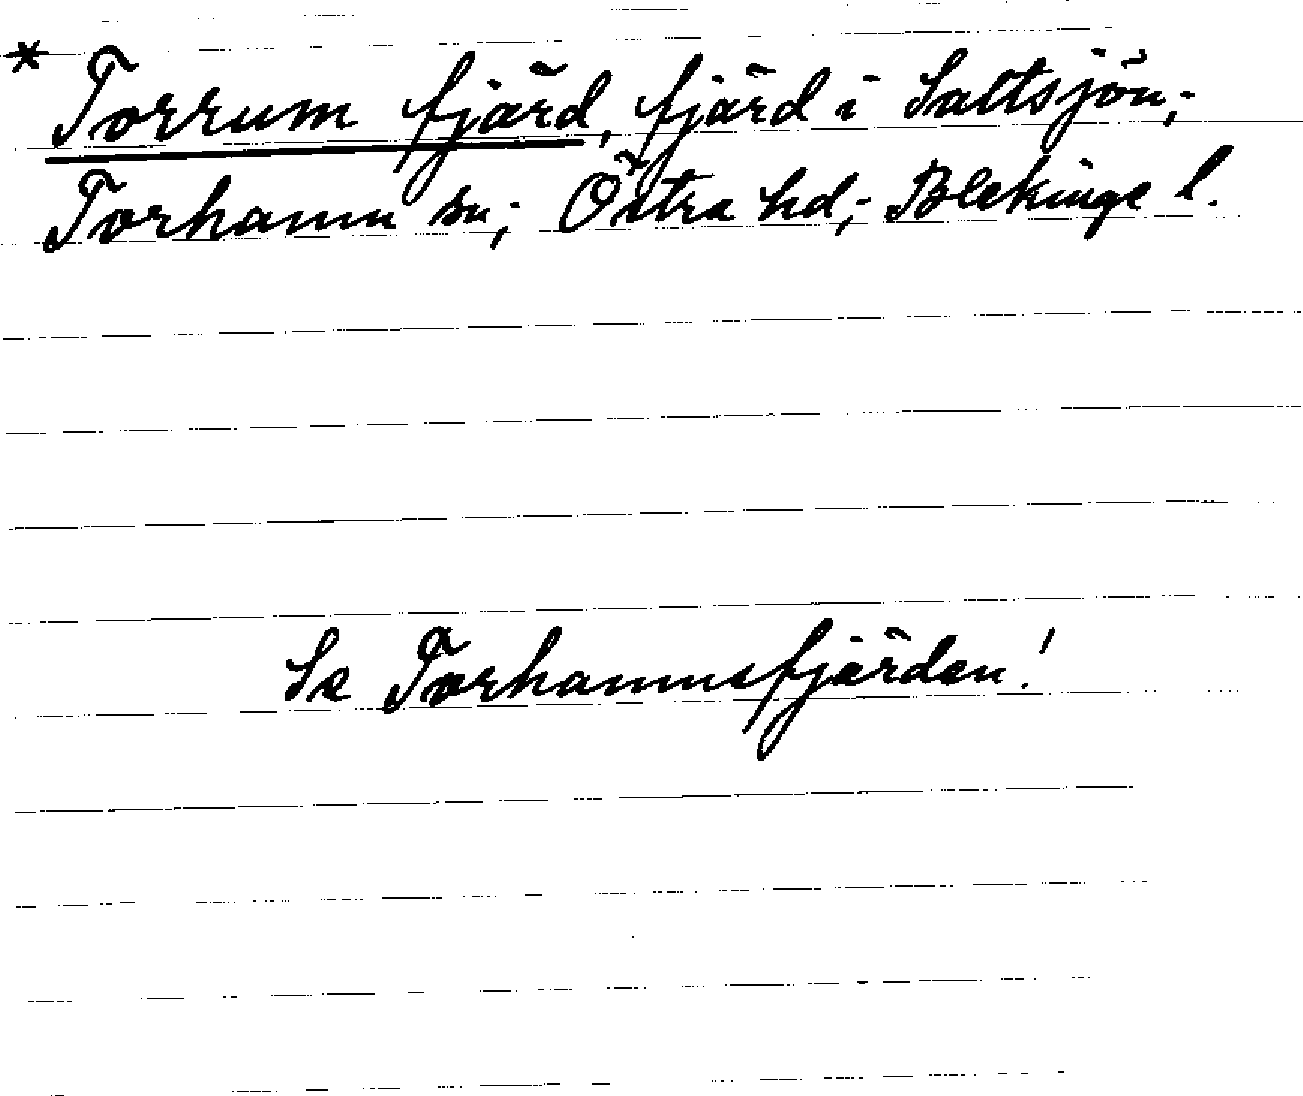 * Torrum fjärd, fjärd i Saltsjön;-
Torhamn sn;- Östra hd;- Blekinge l.
Se Torhamnsfjärden!